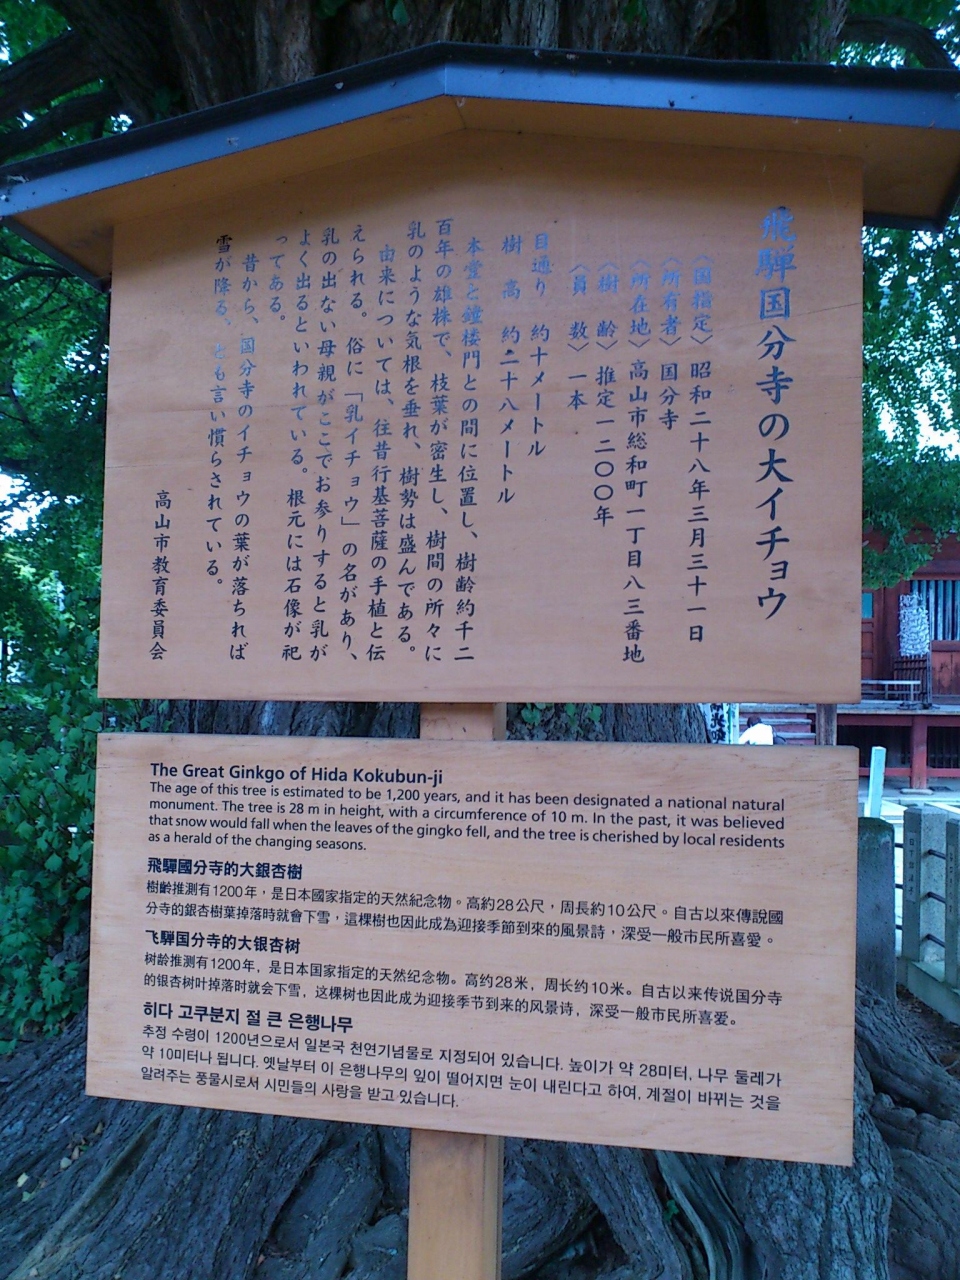 飛騨国分寺の大イチョウ
〈国指定〉 昭和二十八年三月三十一日
〈所有者〉 国分寺
〈所在地〉 高山市総和町一丁目八三番地
〈樹 齢〉 推定一二〇〇年
〈員 数〉 一本
目通り 約十メートル
樹 高 約二十八メートル
本堂と鐘楼門との間に位置し、樹齢約千二
百年の雄株で、枝葉が密生し、樹間の所々に
乳のような気根を垂れ、樹勢は盛んである。
由来については、往昔行基菩薩の手植と伝
えられる。俗に「乳イチョウ」の名があり、
乳の出ない母親がここでお参りすると乳が
よく出るといわれている。根元には石像が祀
ってある。
昔から、国分寺のイチョウの葉が落ちれば
雪が降る、とも言い慣らされている。
高山市教育委員会
The Great Ginkgo of Hida Kokubun-ji
The age of this tree is estimated to be 1,200 years, and it has been designated a national natural
monument. The tree is 28 m in height, with a circumference of 10 m. In the past, it was believed
that snow would fall when the leaves of the gingko fell, and the tree is cherished by local residents
as a herald of the changing seasons.
飛驒國分寺的大銀杏樹
樹齡推測有1200年，是日本國家指定的天然紀念物。高約28公尺，周長約10公尺。自古以來傳說國
分寺的銀杏樹葉掉落時就會下雪，這棵樹也因此成為迎接季節到來的風景詩，深受一般市民所喜愛。
飞驒国分寺的大银杏树
树龄推测有1200年，是日本国家指定的天然纪念物。高约28米，周长约10米。自古以来传说国分寺
的银杏树叶掉落时就会下雪，这棵树也因此成为迎接季节到来的风景诗，深受一般市民所喜爱。
히다 고쿠분지 절 큰 은행나무
추정 수령이 1200년으로서 일본국 천연기념물로 지정되어 있습니다. 높이가 약 28미터, 나무 둘레가
약 10미터나 됩니다. 옛날부터 이 은행나무의 잎이 떨어지면 눈이 내린다고 하여, 계절이 바뀌는 것을
알려주는 풍물시로서 시민들의 사랑을 받고 있습니다.